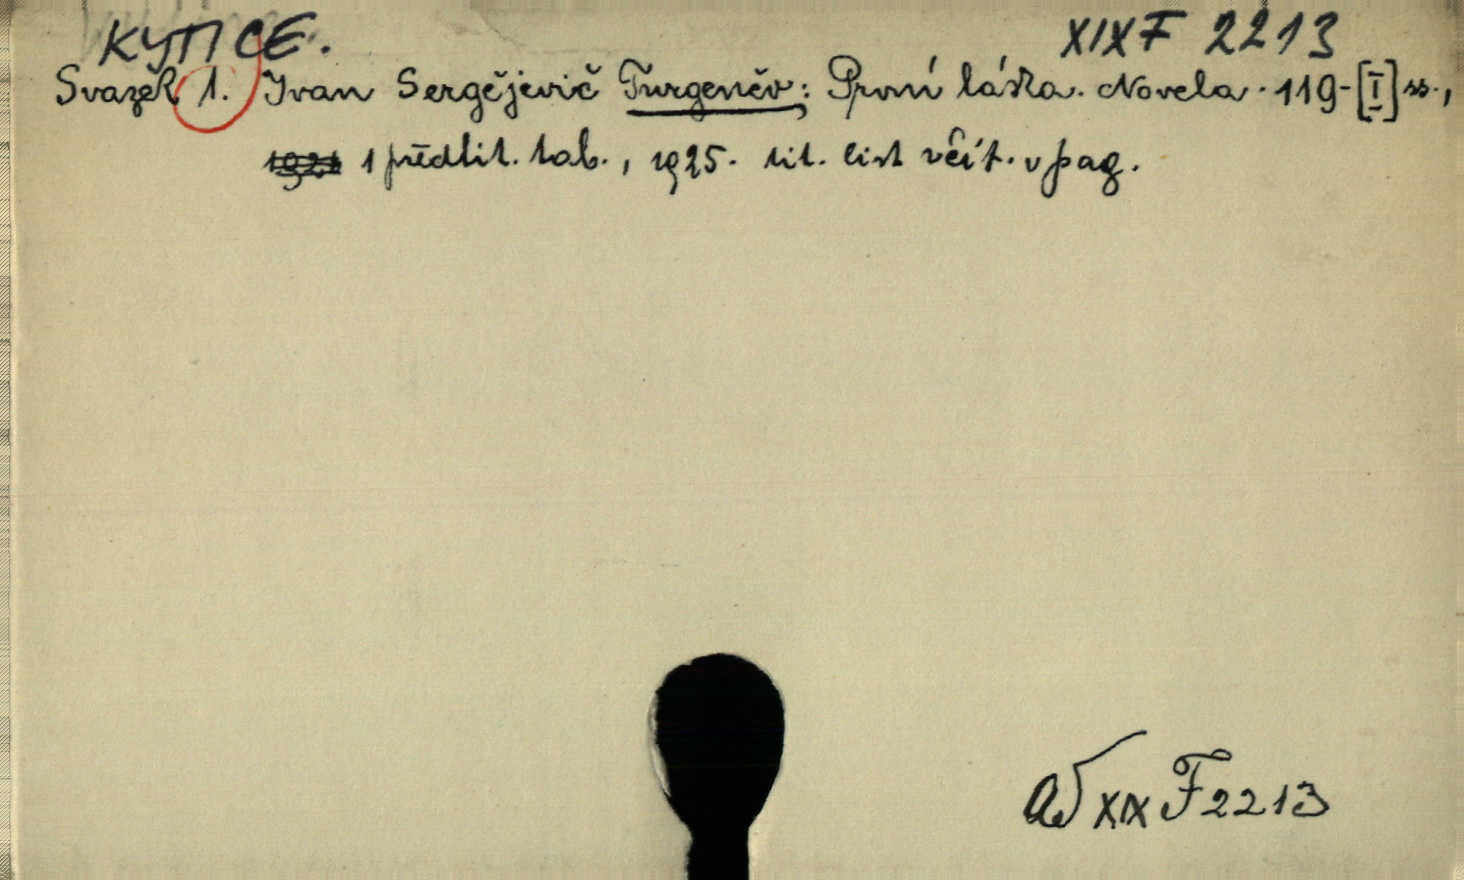 KYTICE.
XIX F 2213
Svazek 1. Ivan Sergějevič Turgeněv: První láska. Novela. 119-[I] ss.,
1 předtit. tab., 1925. tit. list včít. v pag.
XIX F 2213